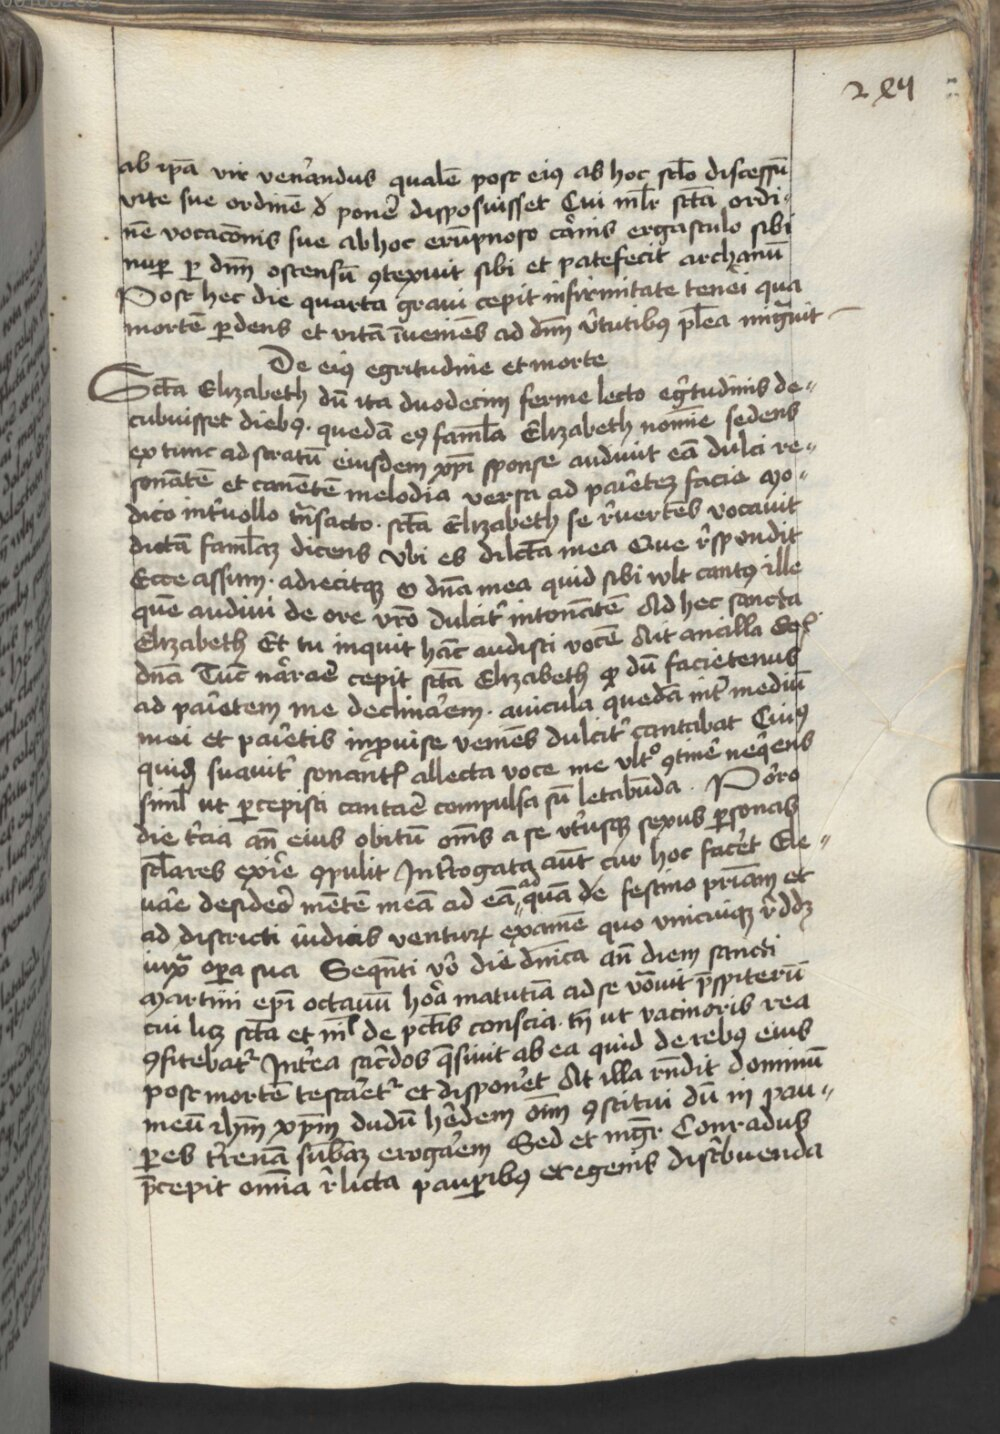 ab ip̄a vir ven̉andus qualē post eiꝰ ab hoc sc̄lo discessū
vite sue ordinē d̉ ponē disposuisset Cui ml̄r sc̄ta ordi-
nē vocacōnis sue ab hoc erūpnoso carnis ergastulo sibi
nuꝑ ꝑ dn̄m ostensū ꝯtexuit sibi et patefecit archanū
Post hec die quarta gravi cepit infirmitate teneri qua
mortē ꝑdens et vitā īveniēs ad dn̄m v̉tutibꝰ pl̄ea migͣuit
De eiꝰ egritudine et morte
Sc̄ta Elizabeth dū ita duodecim ferme lecto egͥtudinis de-
cubuisset diebꝰ. quedā eiꝰ faml̄a Elizabeth nomīe sedens
ex tunc ad stratū eiusdem xp̄i sponse audiuit eā dulci re-
sonātē et canētē melodia versa ad pariͤtez facie Mo-
dico int̉uollo tn̄sacto. sc̄ta Elizabeth se r̉uertēs vocauit
dictā faml̄az dicens Vbi es dilc̄ta mea Que r̉spondit
Ecce assum. adiecitqꝫ O dn̄a mea quid sibi wlt cantꝰ ille
quē audiui de ore vr̄o dulcit̉ intonātē Ad hec sancta
Elizabeth Et tu inquit hāc audisti vocē Ait ancilla
dn̄a Tūc nar̉are cepit sc̄ta Elizabeth ꝙ dū facietenus
ad pariͤtem me declinar̉em. auicula quedā int̉ mediū
mei et pariͤtis inꝓuise veniēs dulcit̉ cantabat Cuiꝰ
quidē suauit̉ sonantꝭ allecta voce me vltͦ ꝯtin̉e neqͥens
siml̄ ut ꝑcepisti cantar̉e compulsa sū letabūda. Porro
die t̉cia an̄ eius obitū om̄s a se vt̉usqꝫ sexus ꝑsonas
sc̄lares exir̉e ꝯpulit Int̉rogata aūt cur hoc facet̉ Ele-
uar̉e desider̉o mētē meā ad eā ad quā de festino pͥmam et
ad districti iudicis venturꝝ examē quo vnicuiqꝫ r̉ddꝫ
iuxͣ oꝑa sua Seqn̄ti v̉o die dn̄ica an̄ diem sancti
Martini epī octauū hora matutīa ad se vͦauit pͣsbiterū
cui licꝫ sc̄ta et nl̄ de pctīs conscia. tn̄ ut racinoris rea
ꝯfitebatͬ Int̉ea sac̉dos qͣsiuit ab ea quid de rebꝰ eius
post mortē testar̉etͬ et disponet̉ At illa rn̄dit dominū
meū ihm̄ xp̄m dudū her̉dem om̄ ꝯstitui dū in pau-
ꝑes t̉renā sūbaz erogar̉em Sed et mgr̄ Conradus
pͣcepit om̄ia r̉licta pauꝑibꝰ et egenis distͥbuenda